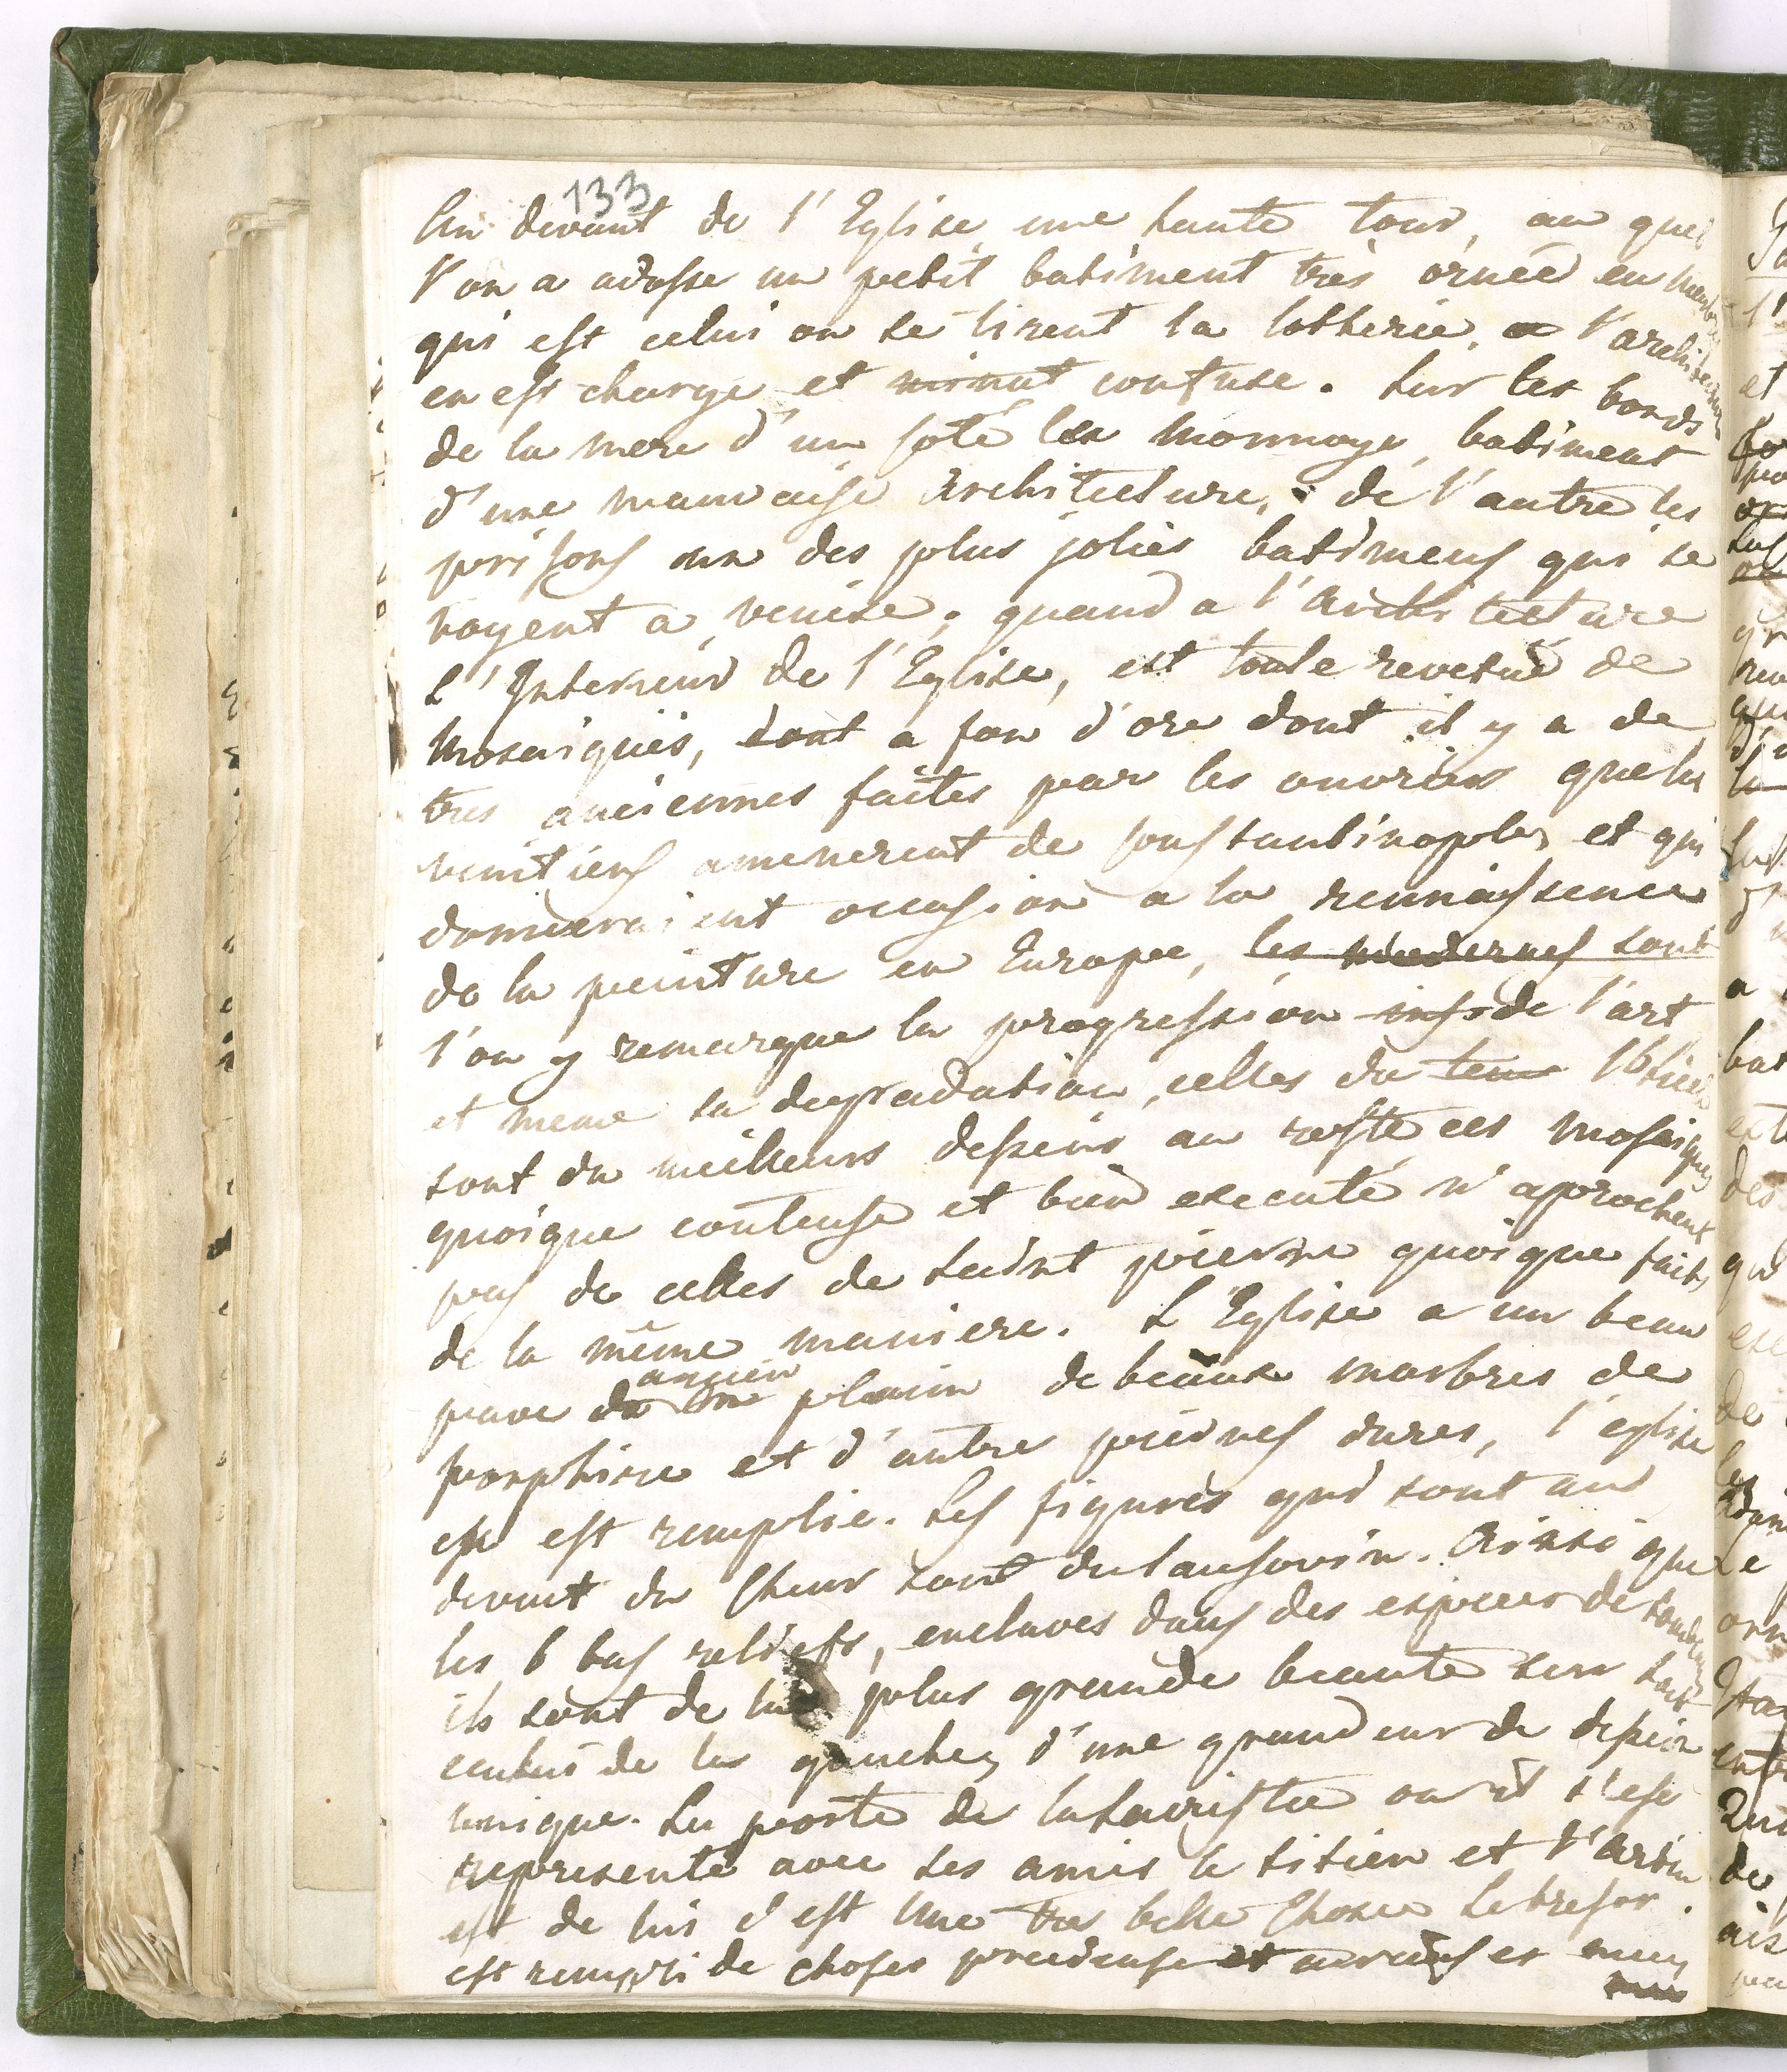 133
Au devant de l'Eglise une haute tour, au quel
l'on a adosse un petit batiment très ornée en
qui est celui ou se tirent la lotterie, l'architecture
en est charge et confuse. Sur les bords
de la mere d'un soté les Monnoye, batiment
d'une mauvaise Architecture, de l'autre les
prisons un des plus jolies batimens qui se
voyent a venise, quand a l'Architecture
L'Interieur de l'Eglise, est toute revetue de
Mosaiques, tout a fon d'ore dont il y a de
tres anciennes faites par les ouvriers que les
venitiens amenerent de Constantinoples et qui
donneraient occasion a la rennaissence
de la peinture en Europe, les modernes sont
l'on y remarque la progression de l'art
et meme sa degradation, celles du tems
sont du meilleurs dessein au reste ces Mosaiques
quoique couteuse et bien execute n'aprochent
pas de celles de saint pierre quoique faits
de la même maniere. L'Eglise a un beau
pave de ancien plein de beaux marbres de
porphire et d'autre pierres dures, l'eglise
en est remplie. Les figures qui sont aud
devant du Cheur sont du sansovin. Ainsi que
les 6 bas reliefs, enclaves dans des especes de
ils sont de la plus grande beaute sur tout
ceului de la gauche, d'une grandeur de dessein
unique. La porte de la sacristie ou il s'est
represente avec ses amis le titien et l'Aretin
est de lui c'est Une tres belle Chose Le tresor.
est rempli de choses precieuse et